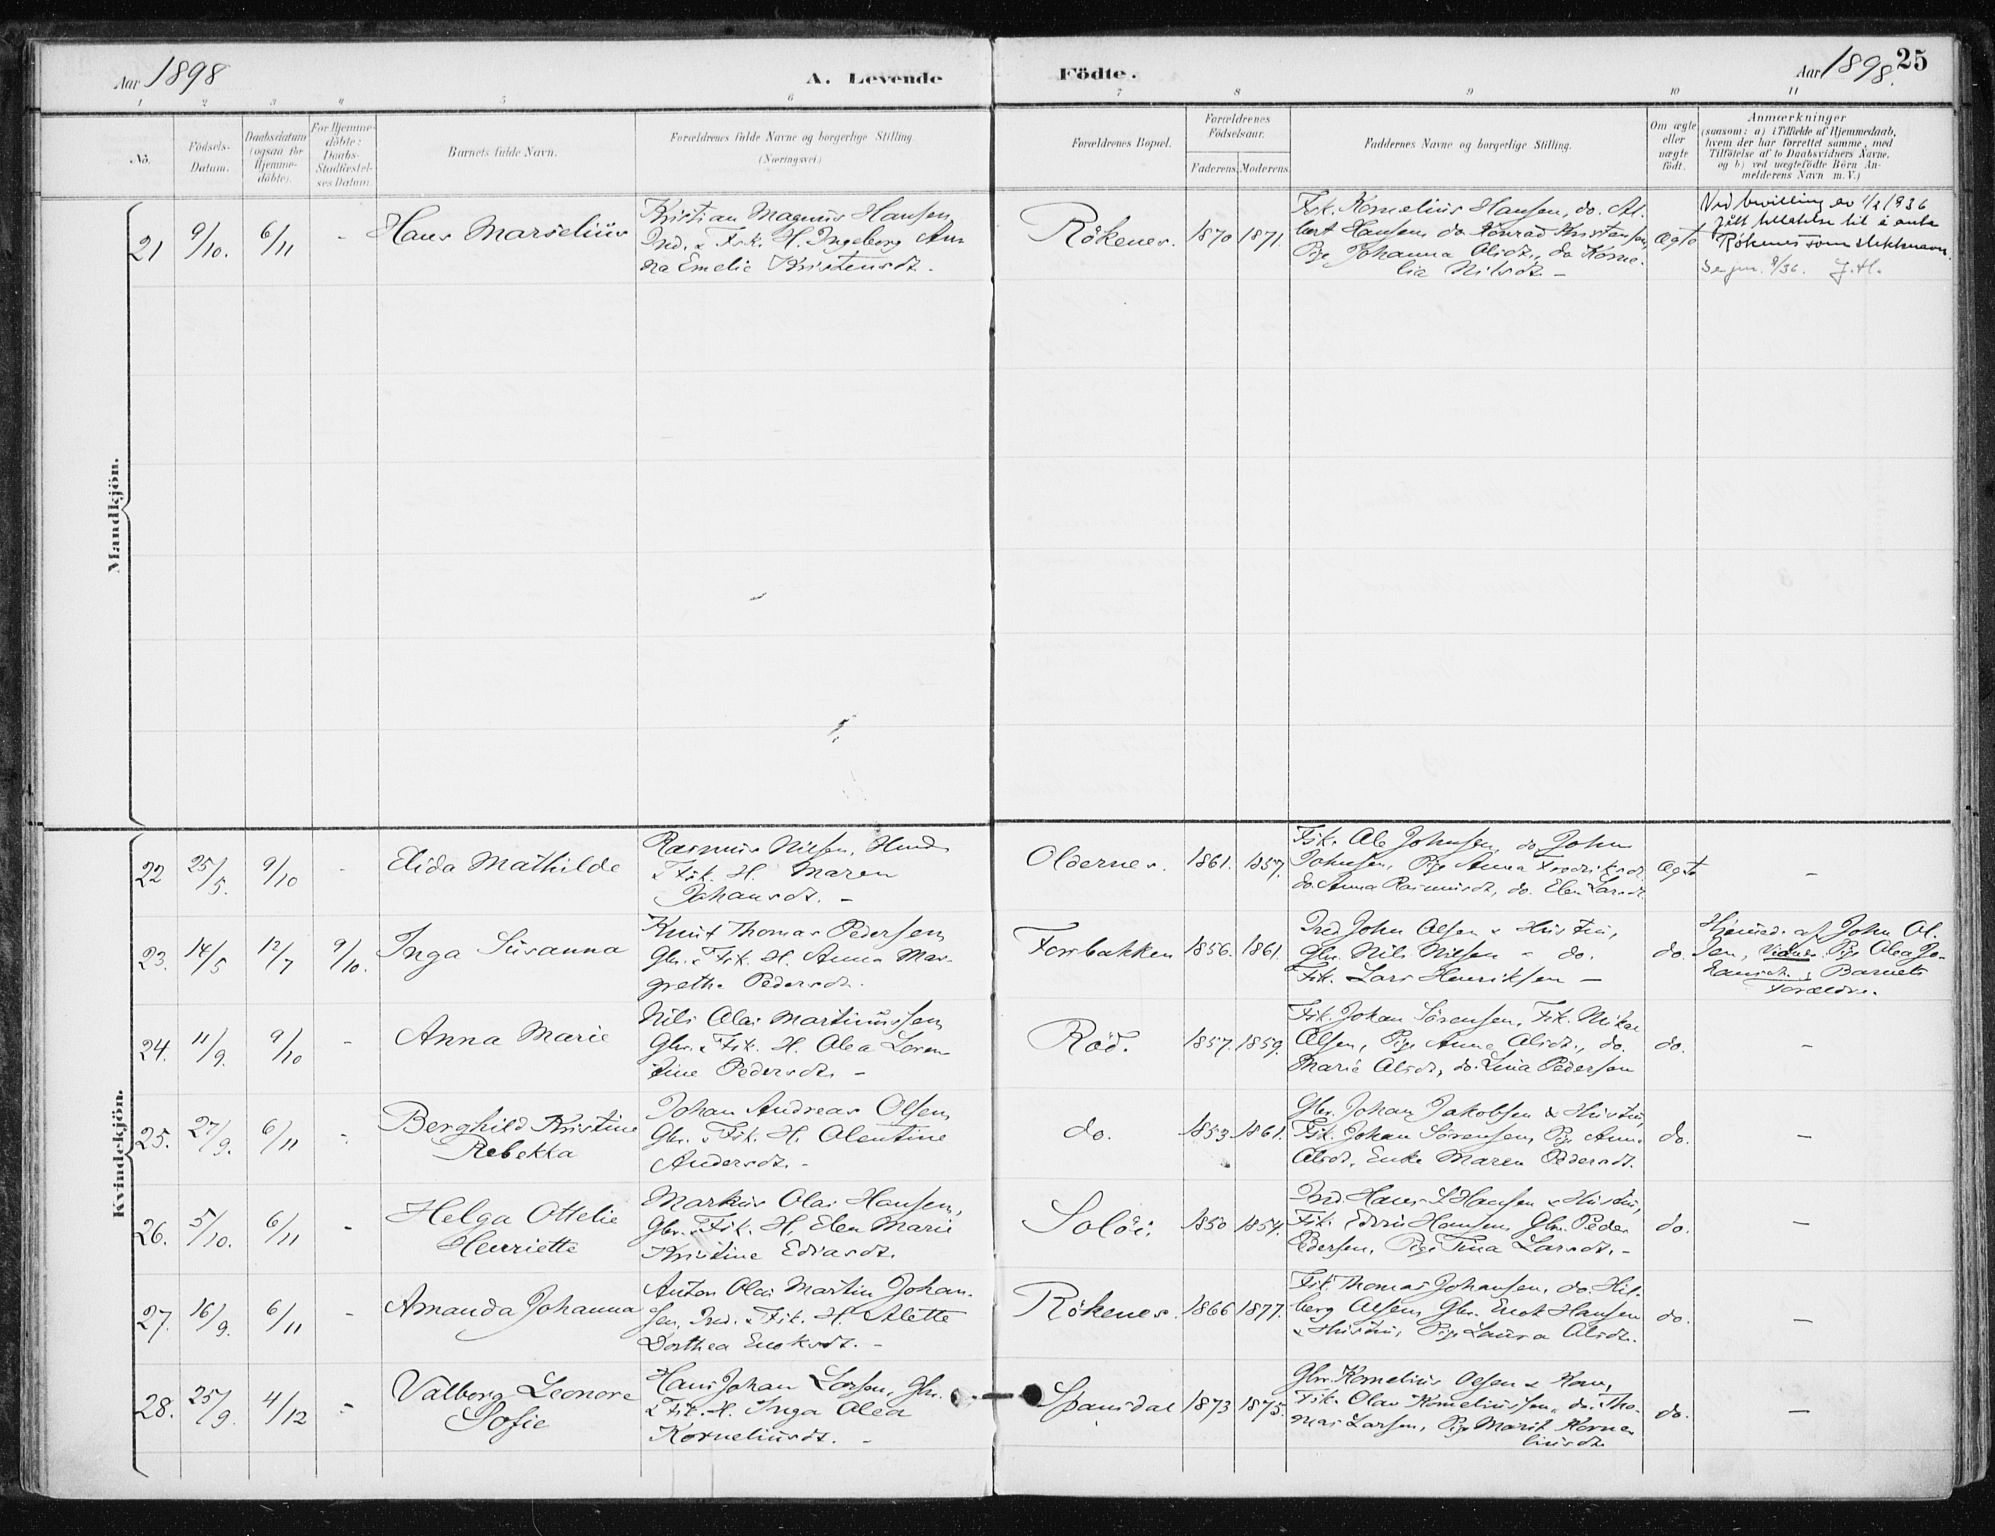 Aar 1898
A. Levende Födte.
Aar 1898.
25
1 2 3 4 5 6 7 8 9 10 11
No.
Födsels-
Datum.
Daabsdatum
(ogsaa for
Hjemme-
döbte).
For Hjemme-
döbte:
Daabs-
Stadfæstel-
ses Datum.
Barnets fulde Navn.
Forældrenes fulde Navne og borgerlige Stilling.
(Næringsvei.)
Forældrenes Bopæl.
Forældrenes
Födselsaar.
Faderens. Moderens.
Faddernes Navne og borgerlige Stilling.
Om ægte
eller
uægte
födt.
Anmærkninger
(saasom: a) i Tilfælde af Hjemmedaab,
hvem der har forrettet samme, med
Tilföielse af to Daabsvidners Navne,
og b) ved uægtefödte Börn An-
melderens Navn m. V.)
Mandkjön.
21
9/10.
6/11
-
Hans Marselius
Kristian Magnus Hansen,
Ind. & Fsk. H. Ingeborg An-
na Emelie Kristensdt.
Rökenes.
1870
1871
Fsk. Kornelius Hansen, do. Al-
bert Hansen, do. Konrad Kristensen,
Pige Johanna Olsdt., do Korne-
lia Nilsdt. -
Ægte
Ved bevilling av 1/2 1936
fått tillatelse til å anta
Rökenes som slektsnavn.
Se jnr. 9/36. J.H.
Kvindekjön.
22
25/5.
9/10
-
Elida Mathilde
Rasmus Nilsen, Ind.
& Fsk. H. Maren
Johansdt. -
Oldernes.
1861.
1857.
Fsk. Ole Johnsen, do. John
Johnsen, Pige Anna Fredriksdt.
do. Anna Rasmusdt, do. Elen Larsdt.
Ægte
-
23.
14/5
12/7
9/10.
Inga Susanna
Knut Thomas Pedersen,
Gbr. & Fsk. H. Anna Mar-
grethe Pedersdt.
Forsbakken
1856.
1861.
Ind John Olsen & Hustru,
Gbr. Nils Nilsen - do.
Fsk. Lars Henriksen -
do.
Hjemmed. af John Ol-
sen, Vidner Pige Olea Jo-
hansdt. & Barnets
Forældre.
24.
11/9.
9/10
-
Anna Marie
Nils Olai Martinussen,
Gbr. & Fsk. H. Olea Loren-
tine Pedersdt. -
Röd.
1857.
1859.
Fsk. Johan Sörensen, Fsk. Nikar
Olsen, Pige Anna Olsdt., do.
Marie Olsdt, do. Lina Pedersen
do.
-
25.
27/9.
6/11
-
Berghild Kristine
Rebekka
Johan Andreas Olsen,
Gbr. & Fsk. H. Olentine
Andersdt. -
do.
1853
1861.
Gbr. Johan Jakobsen & Hustru,
Fsk. Johan Sörensen, Pige Anna
Olsdt, Enke Maren Pedersdt.
do.
-
26.
5/10.
6/11
-
Helga Ottelie
Henriette
Markus Olai Hansen,
Gbr. & Fsk. H. Elen Marie
Kristine Ediasdt.
Solöi.
1850
1854.
Ind. Hans L Hansen & Hustru,
Fsk. Edvin Hansen, Gbr. Peder
Pedersen, Pige Tina Larsdt. -
do.
-
27.
16/9.
6/11
-
Amanda Johanna
Anton Olai Martin Johan-
sen, Ind. & Fsk. H. Alette
Dorthea Enoksdt. -
Rökenes.
1866
1877.
Fsk Thomas Johansen, do. Hil-
berg Olsen, Gbr. Enok Hansen
& Hustru, Pige Laura Olsdt.
do.
-
28.
25/9.
4/12
-
Valborg Leonore
Sofie
Hans Johan Larsen, Gbr.
& Fsk. H. Inga Olea
Korneliusdt. -
Spansdal
1873
1875.
Gbr. Kornelius Olsen & Kone,
Fsk. Olav Korneliussen, do. Tho-
mas Larsen, Pige Marit Korne-
liusdt.
do.
-